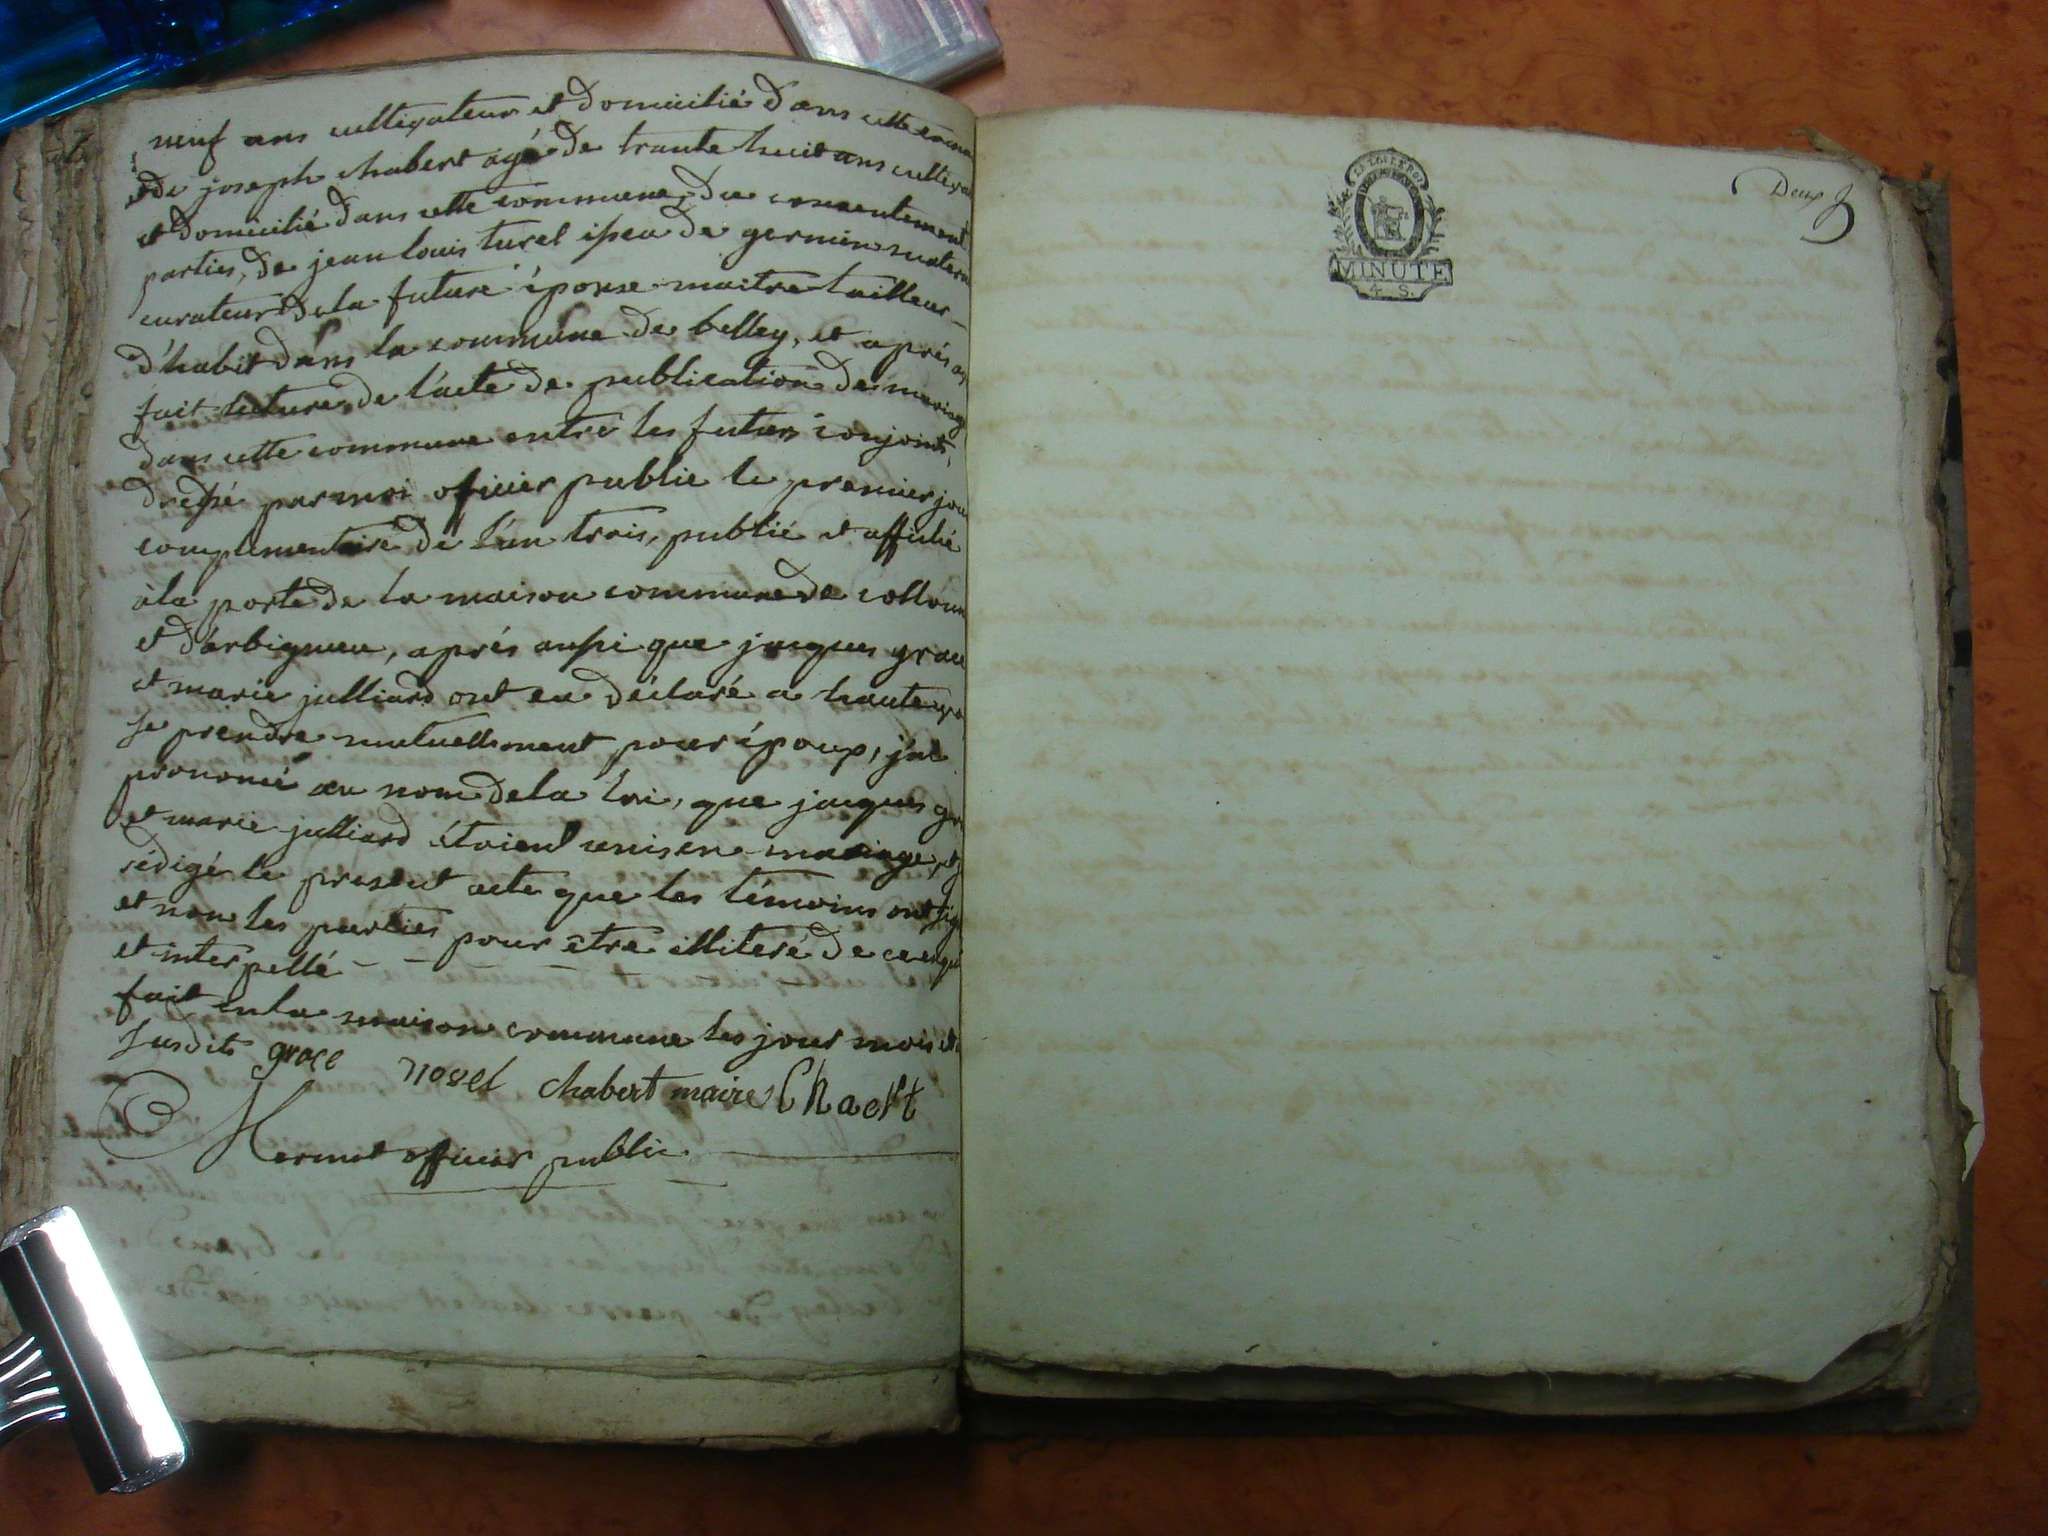 neuf ans cultivateur et domicilié dans cette commu
et de joseph chabert agé de trante huit ans cultivat
et domicilié dans cette commune, du consentement
parties, de jean louis turel de germin matern
curateur de la future épouse maitre tailleur
d'habit dans la commune de belley, et aprés av
fait lecture de l'acte de publication de mariage
dans cette commune entre les futurs conjoints,
dressé par moi officier public le premier jour
complimentaire de l'an trois, publié et affiché
à la porte de la maison commune de collom
et d'arbignieu, aprés aussi que jacques grac
et marie julliard ont eu déclaré a haute vo
se prendre mutuellement pour époux, j'ai
prononcé au nom de la loi, que jacques gra
et marie julliard étoient unis en mariage, et j
rédigé le present acte que les témoins ont sig
et non les parties pour être illiteré de ce enqui
et interpellé
fait en la maison commune les jour mois et
susdits grace novel chabert maire
Mermet officier public
LA LOI LE ROI
MINUTE
4. S.
Deux